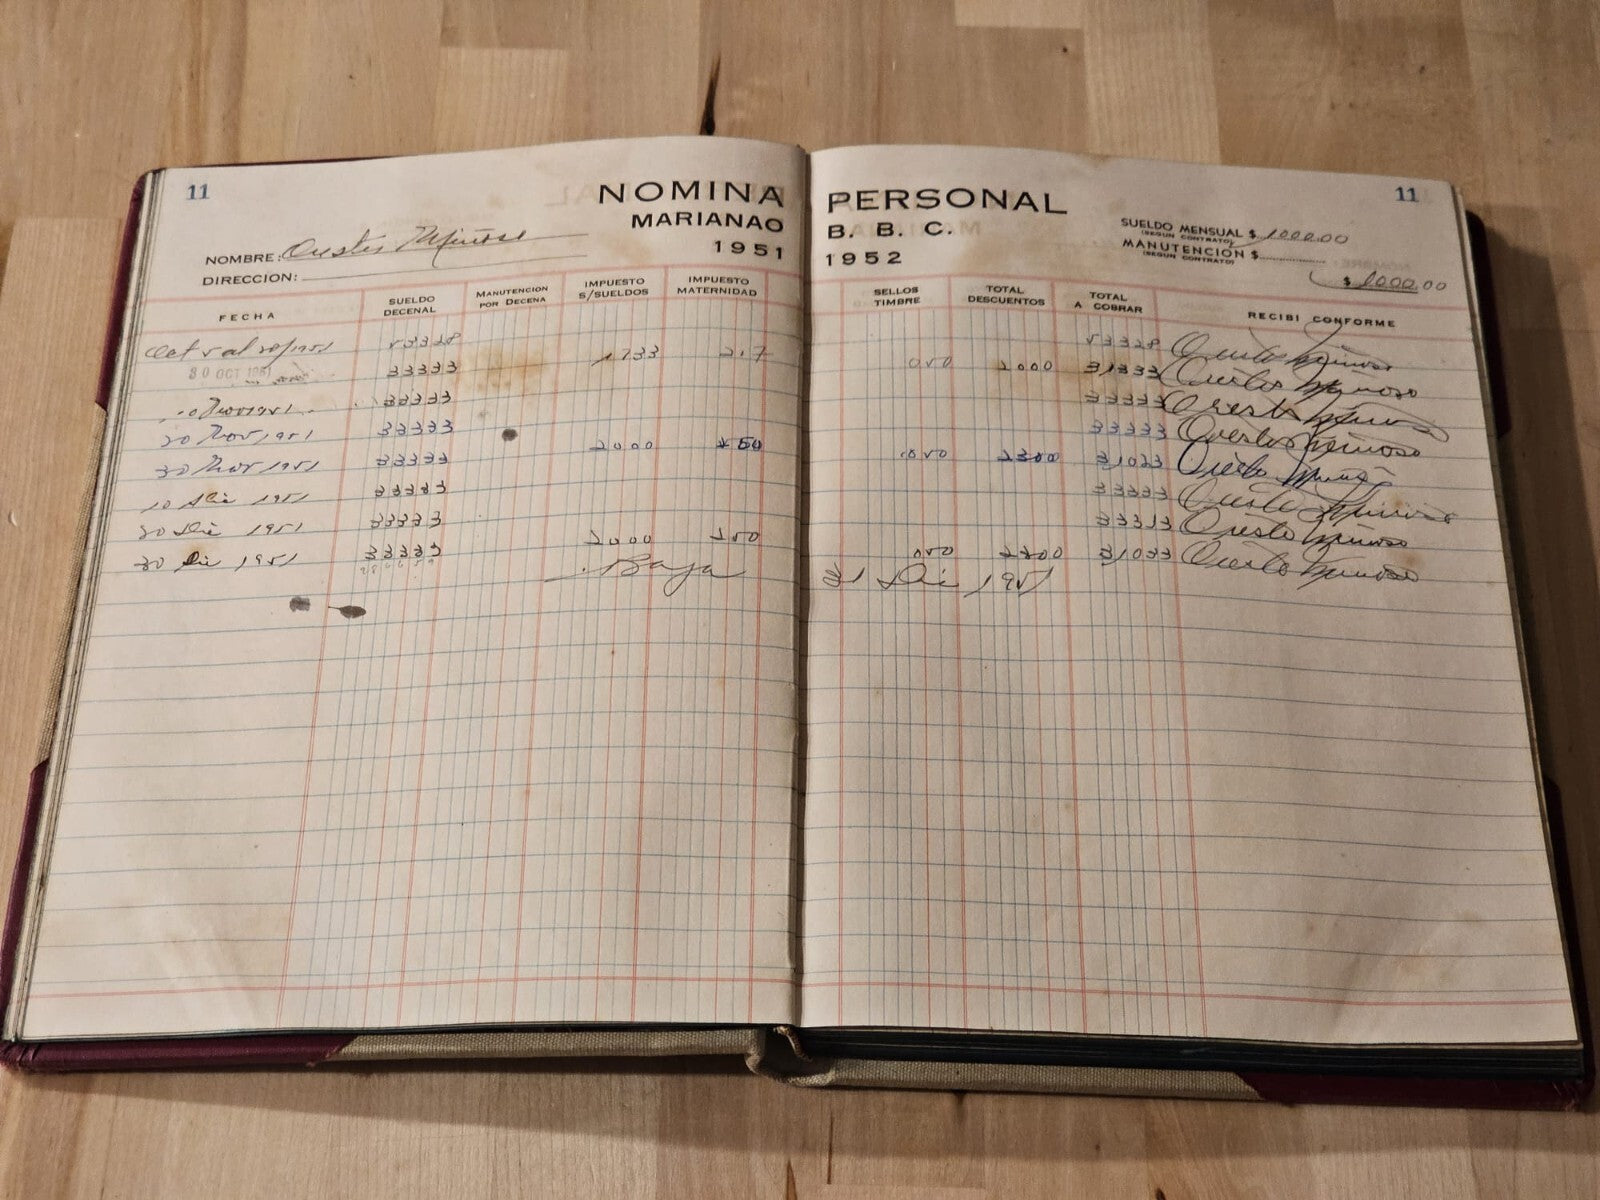 11 NOMINA PERSONAL 11
MARIANAO B. B. C.
1951 1952
SUELDO MENSUAL $ 1000.00
(SEGUN CONTRATO)
MANUTENCIÓN $
(SEGUN CONTRATO)
$ 1000.00
NOMBRE: Orestes Miñoso
DIRECCION:
FECHA SUELDO DECENAL MANUTENCION POR DECENA IMPUESTO S/SUELDOS IMPUESTO MATERNIDAD SELLOS TIMBRE TOTAL DESCUENTOS TOTAL A COBRAR RECIBI CONFORME
Oct al 20/1951 53328 53328 Orestes Miñoso
30 OCT 1951 33333 1733 217 050 2000 31333 Orestes Miñoso
10 Nov 1951 33333 33333 Orestes Miñoso
20 Nov 1951 33333 33333 Orestes Miñoso
30 Nov 1951 33333 2000 250 050 2300 31033 Orestes Miñoso
10 Dic 1951 33333 33333 Orestes Miñoso
20 Dic 1951 33333 33333 Orestes Miñoso
30 Dic 1951 33333 2000 250 050 2300 31033 Orestes Miñoso
Baja 31 Dic 1951